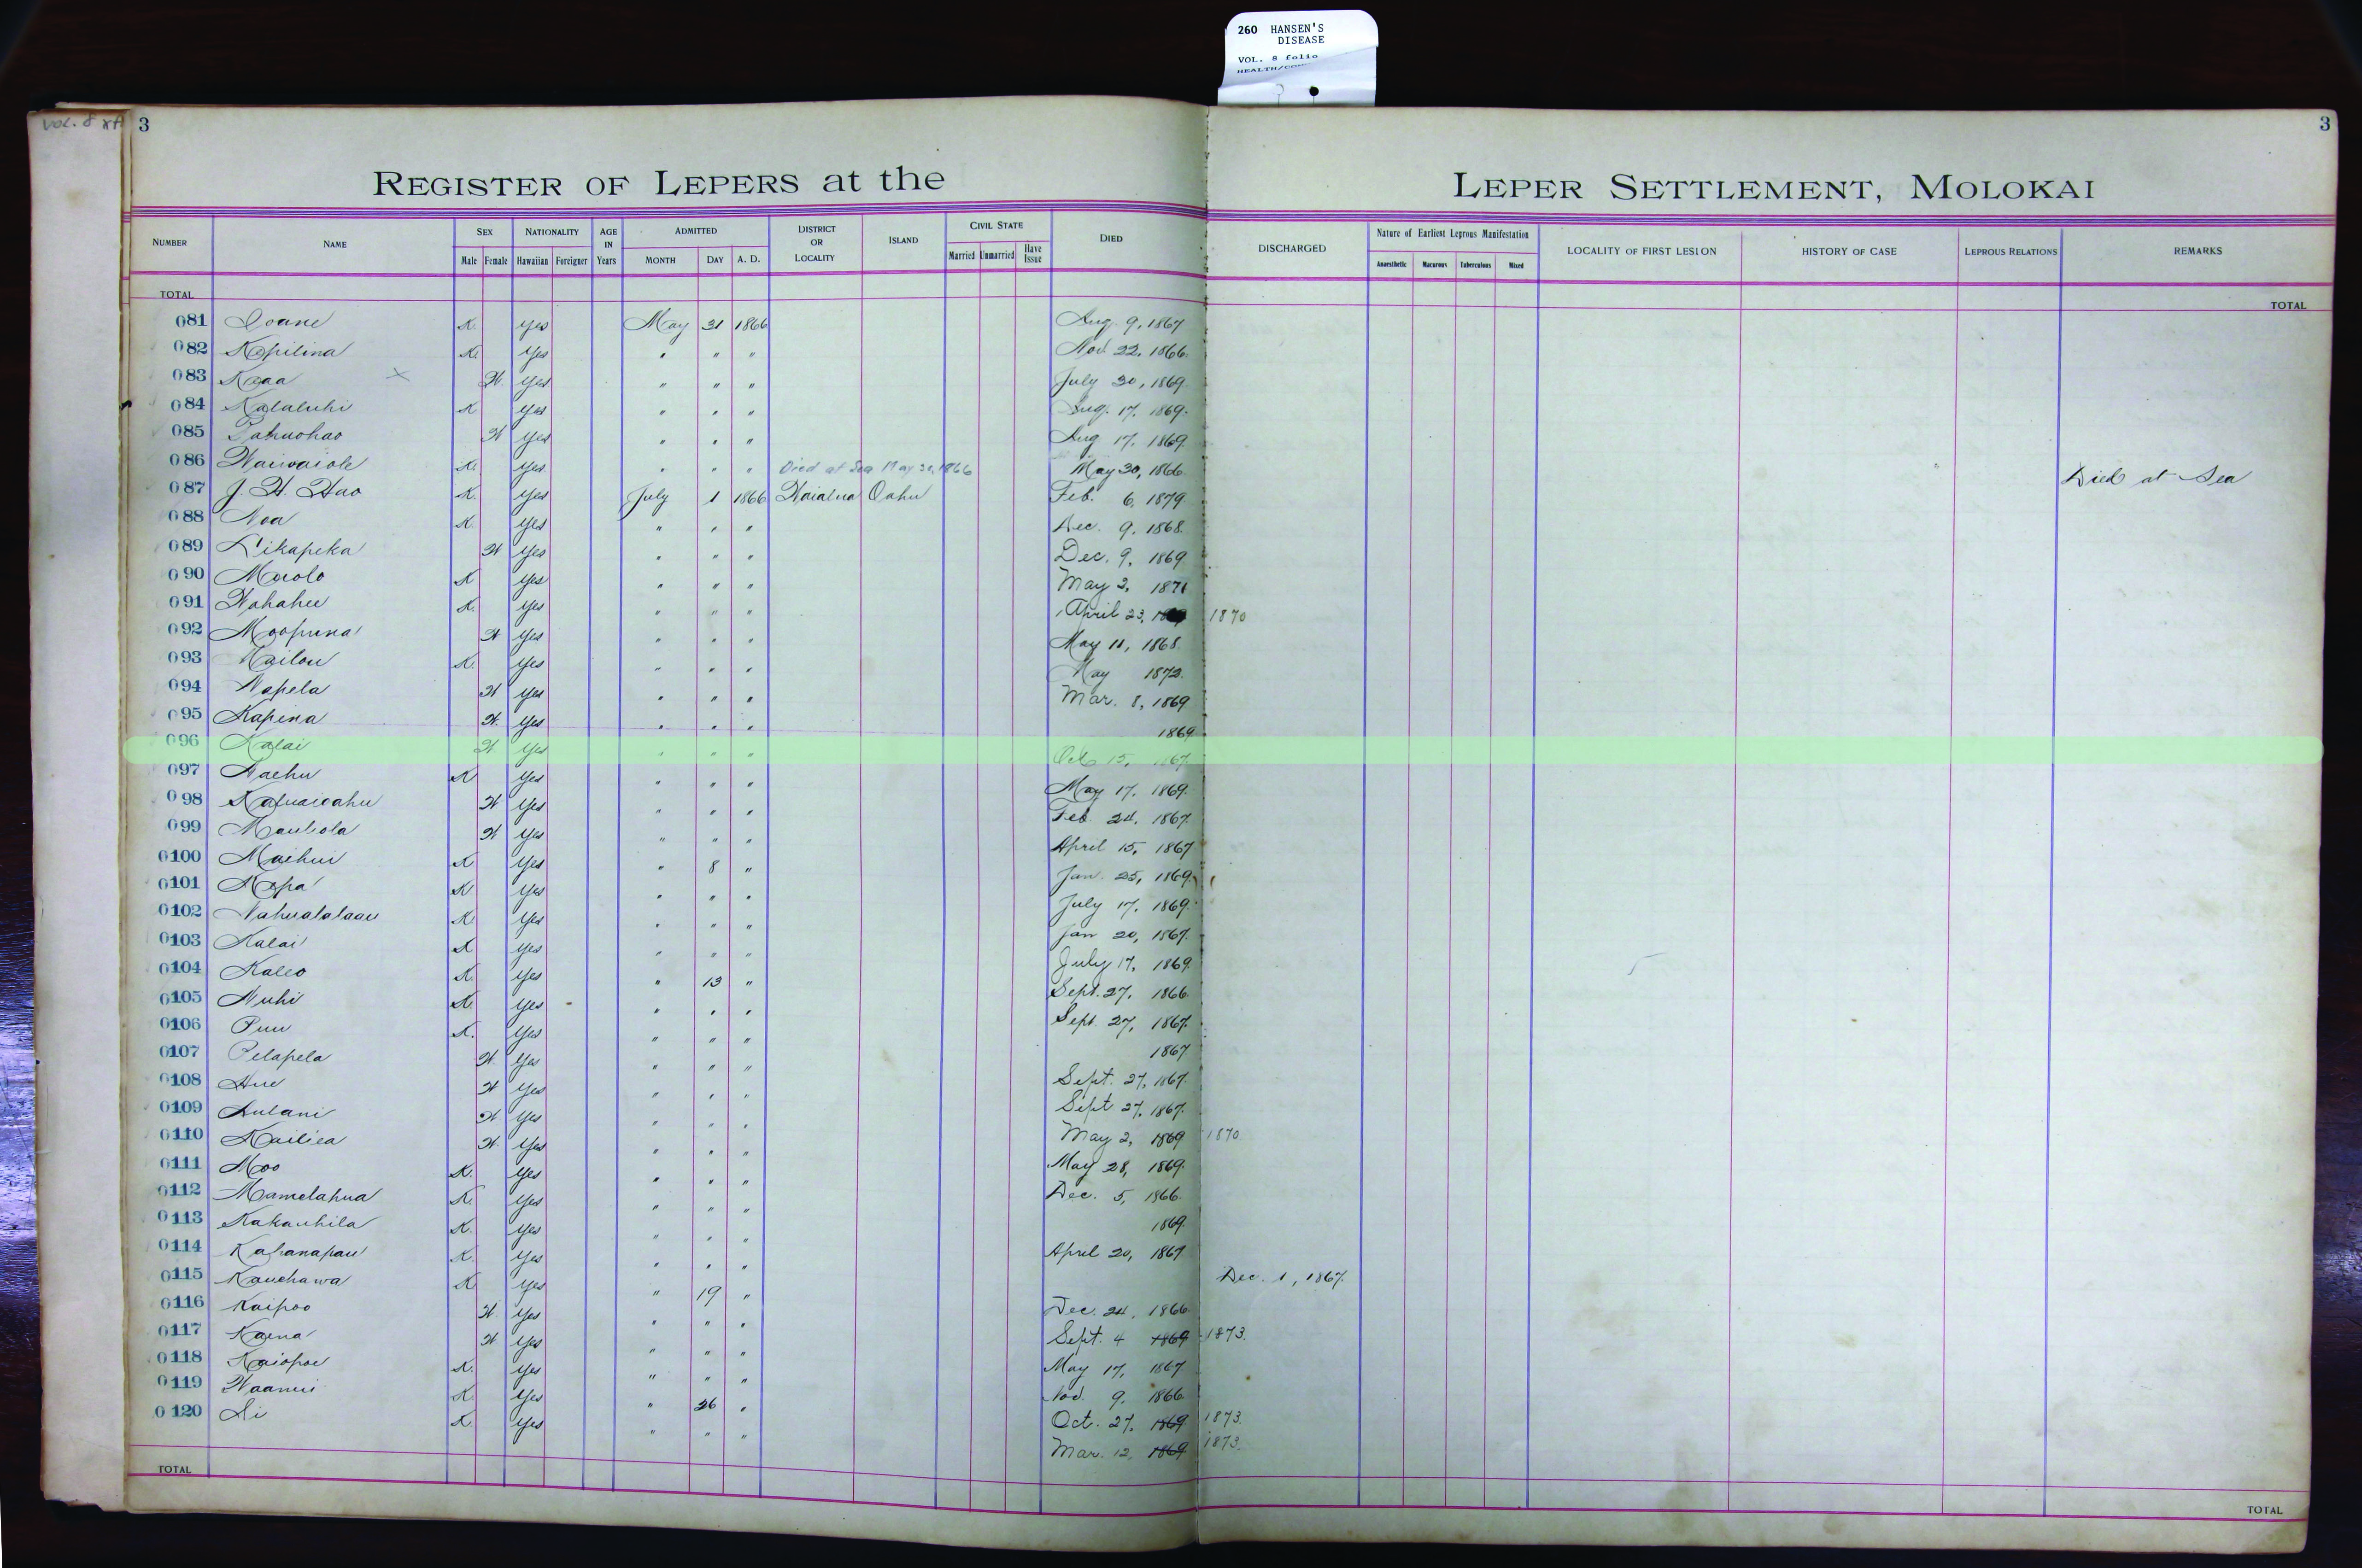 260 HANSEN'S
DISEASE
VOL. 8 folio
VOL. 8
3
3
REGISTER OF LEPERS at the LEPER SETTLEMENT, MOLOKAI
NUMBER NAME SEX NATIONALITY AGE IN Years ADMITTED DISTRICT OR LOCALITY ISLAND CIVIL STATE DIED DISCHARGED Nature of Earliest Leprous Manifestation LOCALITY OF FIRST LESION HISTORY OF CASE LEPROUS RELATIONS REMARKS
Male Female Hawaiian Foreigner MONTH DAY A. D. Married Unmarried Have Issue Anaesthetic Macurous Tuberculous Mixed
TOTAL TOTAL
081 Ioane K. yes May 31 1866 Aug. 9, 1867
082 Kapilina K. yes " " " Nov. 22, 1866.
083 Kaaa x W. yes " " " July 30, 1869.
084 Kalaluhi K yes " " " Aug. 17, 1869.
085 Pahuohao W yes " " " Aug 17, 1869.
086 Waiwaiole K. yes " " " Died at Sea May 30, 1866 May 30, 1866. Died at Sea
087 J. H. Hao K. yes July 1 1866 Waialua Oahu Feb. 6, 1879
088 Noa K. yes " " " Dec. 9, 1868.
089 Likapeka W yes " " " Dec. 9, 1869
090 Maolo K yes " " " May 2, 1871
091 Wahahee K. yes " " " April 23, 1870
092 Moopuna W yes " " " May 11, 1868.
093 Kailou K. yes " " " May 1872.
094 Napela W yes " " " Mar. 8, 1869
095 Kapena W. yes " " " 1869
096 Kalai W yes " " " Oct 15, 1867.
097 Naehu K yes " " " May 17, 1869.
098 W yes " " " Feb. 24, 1867.
099 Mauliola W yes " " " April 15, 1867
0100 Maehui K yes " 8 " Jan. 25, 1869.
0101 Napa K yes " " " July 17, 1869.
0102 Nahualalaau K. yes " " " Jan 20, 1867.
0103 Kalai K yes " " " July 17, 1869.
0104 Kaleo K. yes " 13 " Sept. 27, 1866.
0105 Nuhi K. yes " " " Sept. 27, 1867.
0106 Puu K. yes " " " 1867
0107 Pelapela W yes " " " Sept. 27, 1867.
0108 Hue W yes " " " Sept 27, 1867.
0109 Aulani W yes " " " May 2, 1869 1870.
0110 Kailiea W. yes " " " May 28, 1869.
0111 Moo K. yes " " " Dec. 5, 1866.
0112 Mamelahua K. yes " " " 1869.
0113 Kakauhila K. yes " " " April 20, 1867
0114 Kahanapau K. yes " " " Dec. 1, 1867.
0115 Kauehawa K. yes " 19 " Dec. 24, 1866.
0116 Kaipoo W. yes " " " Sept. 4 1869 1873.
0117 Kaena W yes " " " May 17, 1867
0118 Kaiopoe K. yes " " " Nov. 9, 1866.
0119 K. yes " 26 " Oct. 27, 1869 1873.
0120 K. yes " " " Mar. 12, 1869 1873.
TOTAL TOTAL